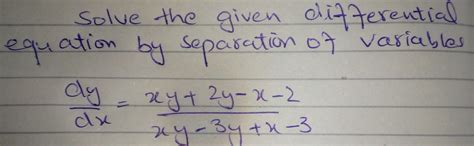 Solve the given differential
equation by separation of variables
dy/dx = xy + 2y - x - 2 / xy - 3y + x - 3